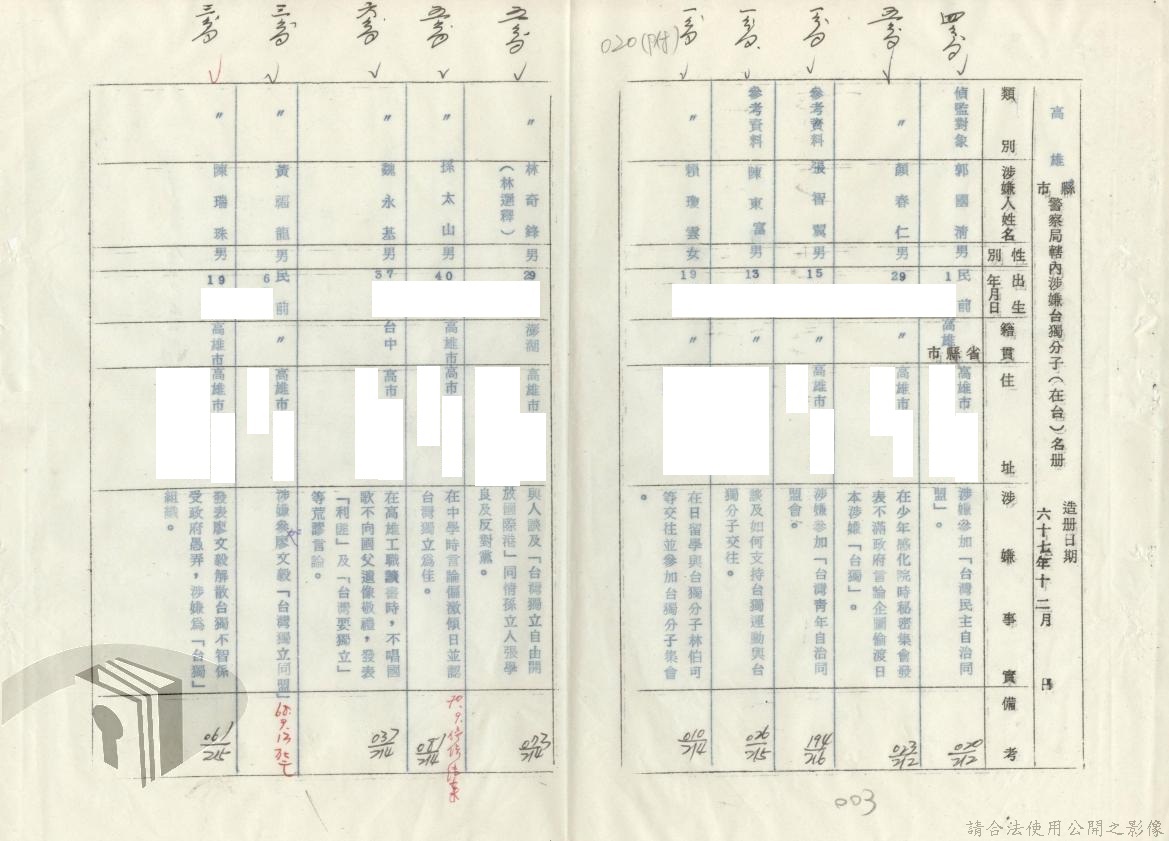 高雄市縣警察局轄內涉嫌台獨分子(在台)名册
造册日期 六十七年十二月 日
類別
涉嫌人姓名
性別
出生年月日
籍貫 省縣市
住址
涉嫌事實
備考
偵監對象 郭國清 男 民前1 高雄 高雄市
涉嫌參加「台灣民主自治同
盟」。
020/212
〃 顏春仁 男 29 〃 高雄市
在少年感化院時秘密集會發
表不滿政府言論企圖偷渡日
本涉嫌「台獨」。
023/212
參考資料 張智翼 男 15 〃 高雄市
涉嫌參加「台灣靑年自治同
盟會。
194/216
參考資料 陳東富 男 13 〃
談及如何支持台獨運動與台
獨分子交往。
026/215
〃 賴瓊雲 女 19 〃
在日留學與台獨分子林伯可
等交往並參加台獨分子集會
。
010/214
020(附)
003
〃 林奇鋒(林選釋) 男 29 澎湖 高雄市
與人談及「台灣獨立自由開
放國際港」同情孫立人張學
良及反對黨。
073/214
〃 孫太山 男 40 高雄市 高市
在中學時言論偏激傾日並認
台灣獨立為佳。
081/214
〃 魏永基 男 37 台中 高市
在高雄工職讀書時,不唱國
歌不向國父遺像敬禮,發表
「利匪」及「台灣要獨立」
等荒謬言論。
037/214
〃 黃福龍 男 民前6 〃 高雄市
涉嫌參廖文毅「台灣獨立同盟」
68.9.13死亡
〃 陳瑞珠 男 19 高雄市 高雄市
發表廖文毅解散台獨不智係
受政府愚弄,涉嫌為「台獨」
組織。
061/215
請合法使用公開之影像